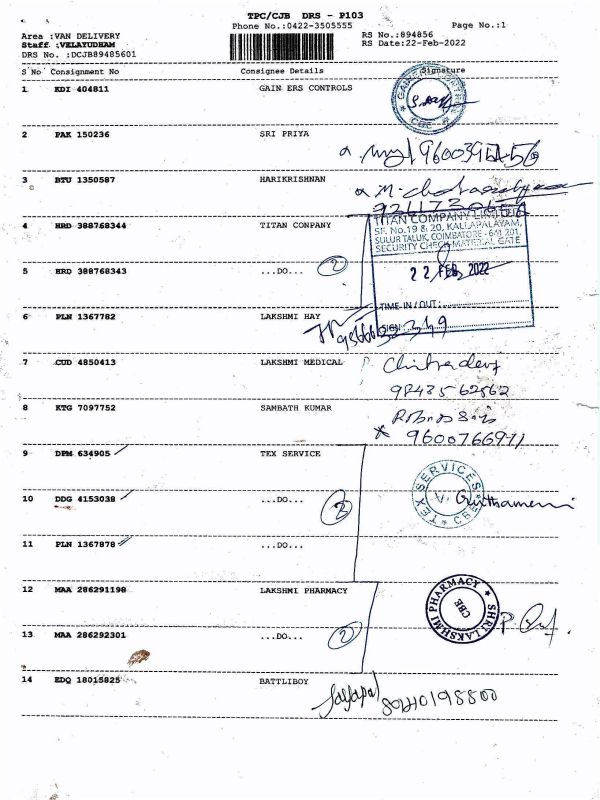 TPC/CJB DRS - P103
Phone No.:0422-3505555 Page No.:1
Area :VAN DELIVERY RS No.:894856
Staff :VELAYUDHAM RS Date:22-Feb-2022
DRS No. :DCJB89485601
S No Consignment No Consignee Details Signature
1 KDI 404811 GAIN ERS CONTROLS
CBE
2 PAK 150236 SRI PRIYA
3 BTU 1350587 HARIKRISHNAN
4 HRD 388768344 TITAN CONPANY
TITAN COMPANY LIMITED
SF. No.19 & 20, KALLAPALAYAM,
SULUR TALUK, COIMBATORE - 641 201.
SECURITY CHECK MATERIAL GATE
5 HRD 388768343 ...DO... 2
22 FEB 2022
TIME IN / OUT :
SIGN :
6 PLN 1367782 LAKSHMI HAY
7 CUD 4850413 LAKSHMI MEDICAL Chitradevi
9843562562
8 KTG 7097752 SAMBATH KUMAR
9 DPM 634905 TEX SERVICE
TEX SERVICES
CBE
10 DDG 4153038 ...DO... 3
11 PLN 1367878 ...DO...
12 MAA 286291198 LAKSHMI PHARMACY
SHRI LAKSHMI PHARMACY
CBE
13 MAA 286292301 ...DO... 2
14 EDQ 18015825 BATTLIBOY
Jayapal